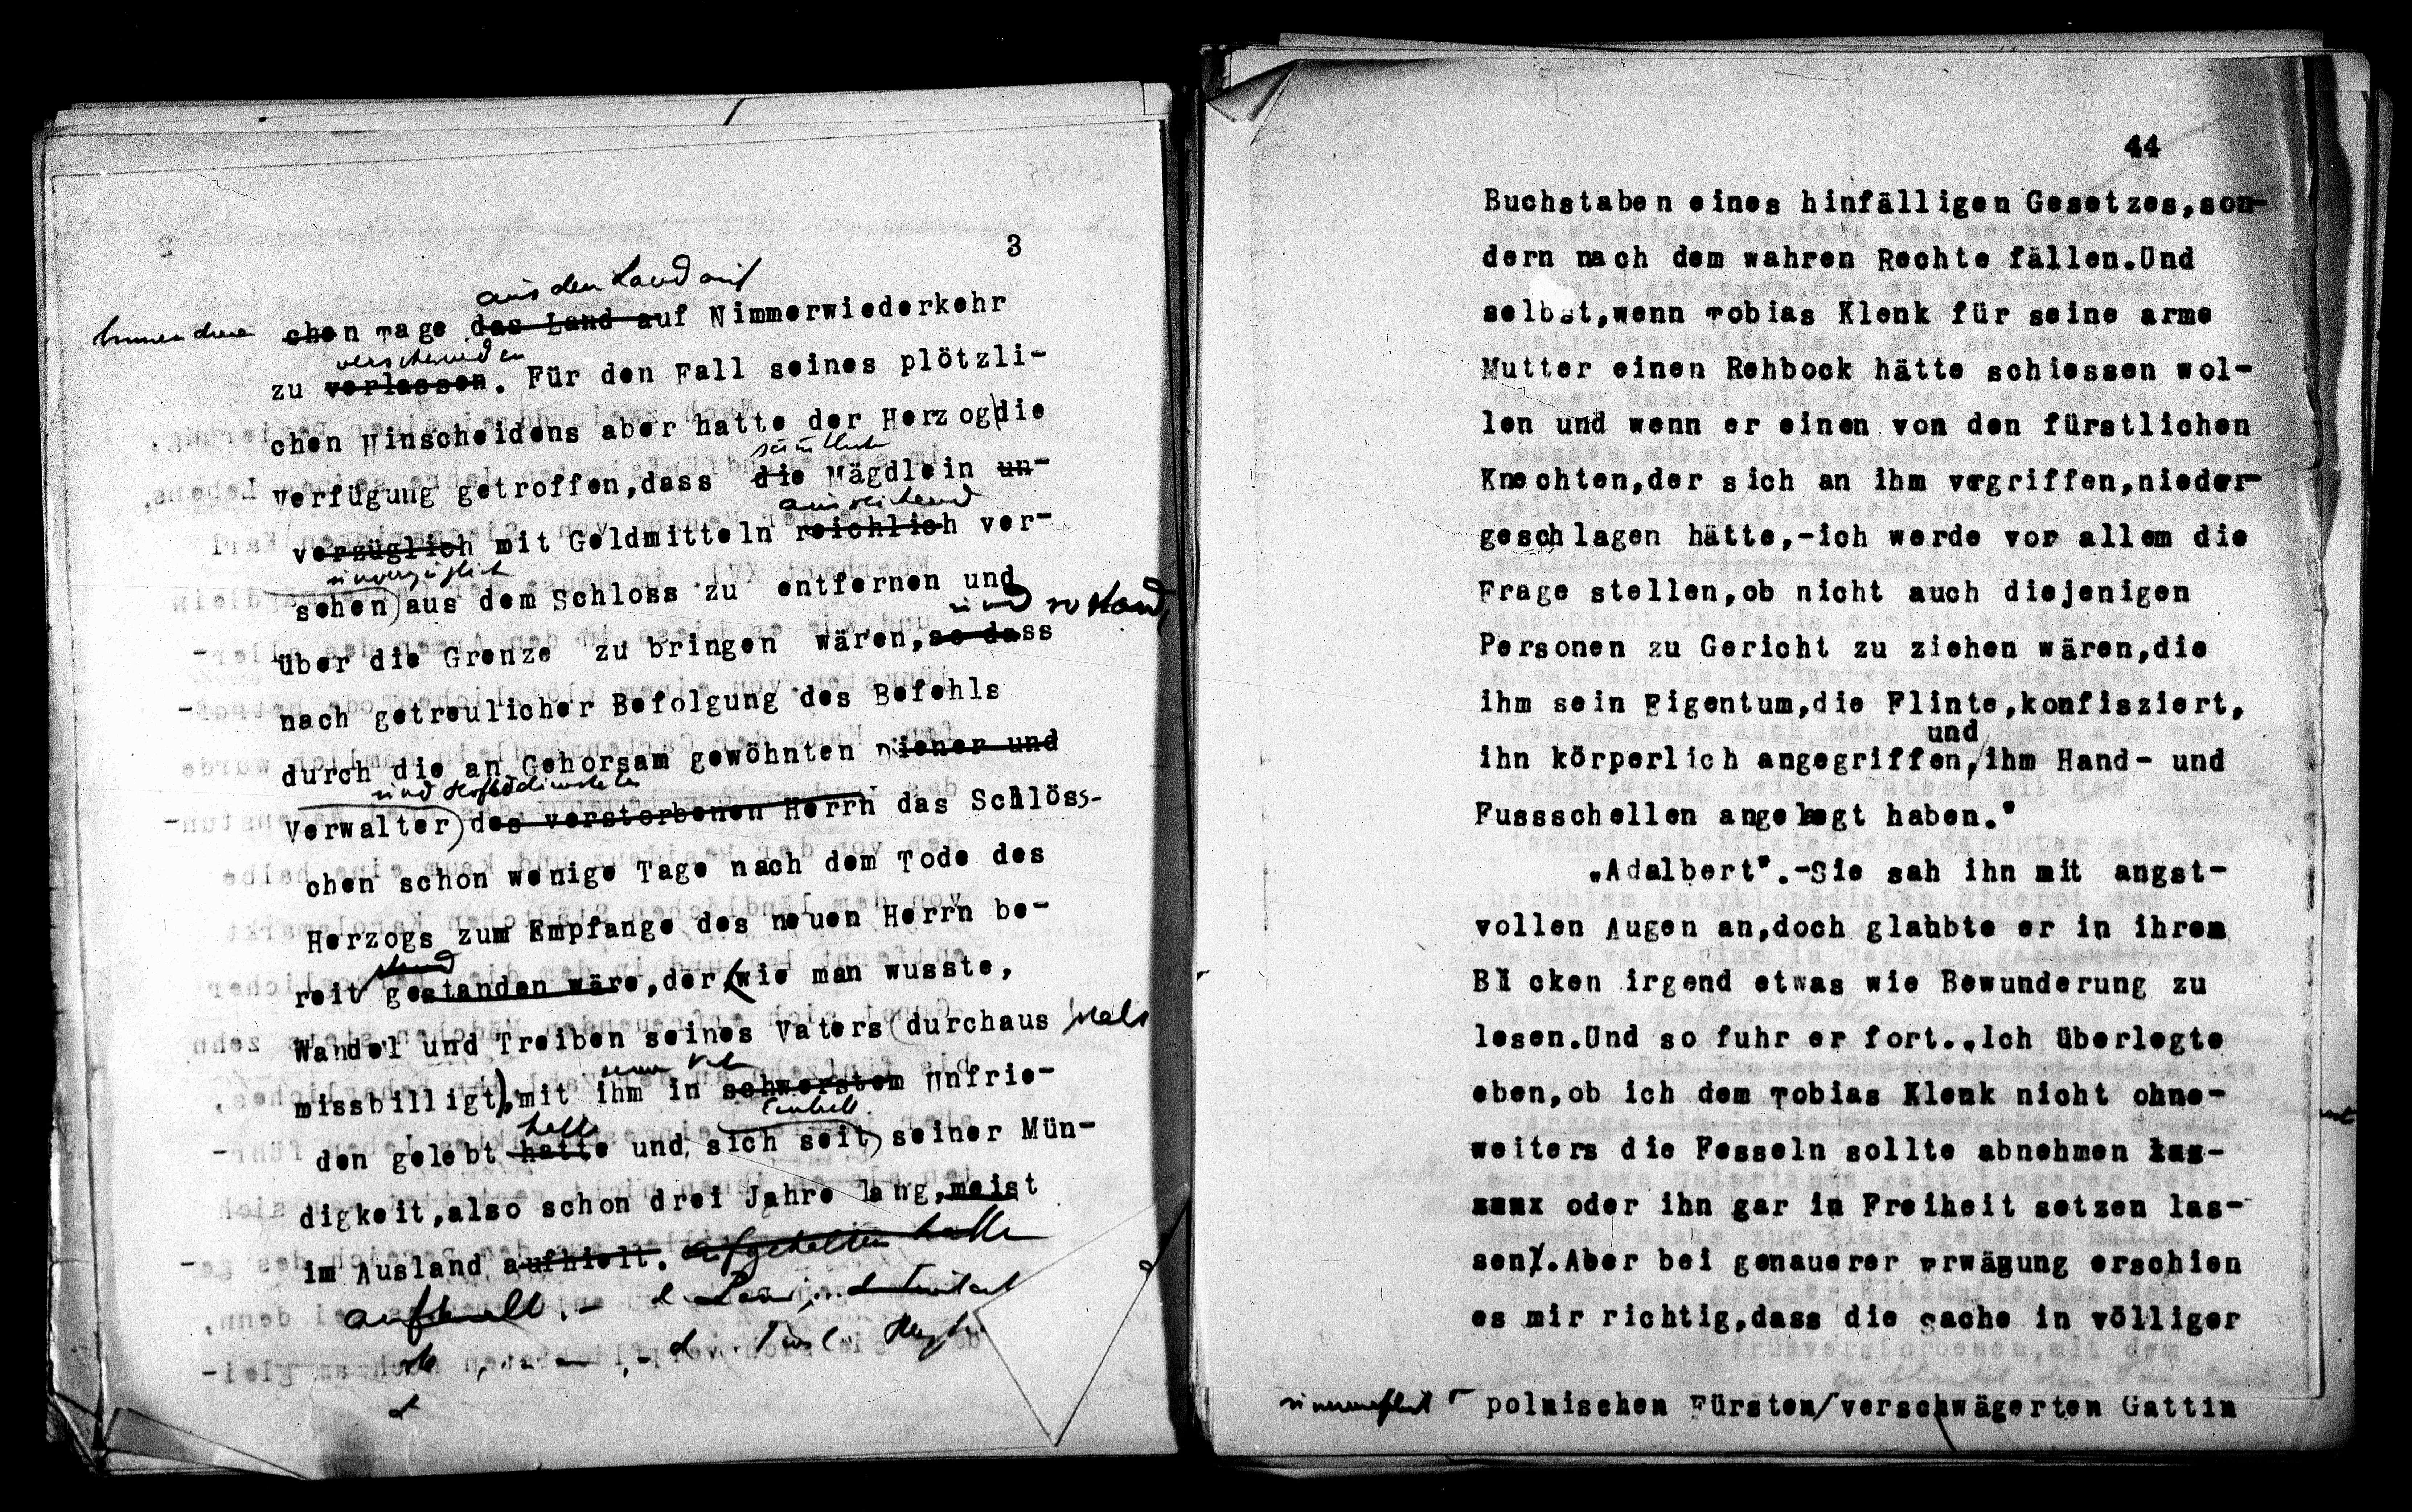 3
aus den Land auf
chen Tage das Land auf Nimmerwiederkehr
verschwinden
zu verlassen. Für den Fall seines plötzli-
chen Hinscheidens aber hatte der Herzog die
sämtliche
Verfügung getroffen,dass die Mägdlein un-
ausreichend
verzüglich mit Geldmitteln reichlich ver-
unverzüglich
sehen) aus dem Schloss zu entfernen und
und
über die Grenze zu bringen wären,so dass
nach getreulicher Befolgung des Befehls
durch die an Gehorsam gewöhnten Diener und
und Hofbediensteten
Verwalter) des verstorbenen Herrn das Schlöss-
chen schon wenige Tage nach dem Tode des
Herzogs zum Empfange des neuen Herrn be-
stand
reit gestanden wäre,der (wie man wusste,
Wandel und Treiben seines Vaters (durchaus stets
missbilligt),mit ihm in schwerstem Unfrie-
den gelebt hatte und sich seit) seiner Mün-
digkeit,also schon drei Jahre lang,meist
im Ausland aufhielt. aufgehalten hatte
aufhielt.-
44
Buchstaben eines hinfälligen Gesetzes,son-
dern nach dem wahren Rechte fällen.Und
selbst,wenn Tobias Klenk für seine arme
Mutter einen Rehbock hätte schiessen wol-
len und wenn er einen von den fürstlichen
Knechten,der sich an ihm vergriffen,nieder-
geschlagen hätte,-ich werde vor allem die
Frage stellen,ob nicht auch diejenigen
Personen zu Gericht zu ziehen wären,die
ihm sein Eigentum,die Flinte,konfisziert,
und
ihn körperlich angegriffen,/ihm Hand- und
Fussschellen angelegt haben."
„Adalbert".-Sie sah ihn mit angst-
vollen Augen an,doch glaubte er in ihrem
Blicken irgend etwas wie Bewunderung zu
lesen.Und so fuhr er fort.„Ich überlegte
eben,ob ich dem Tobias Klenk nicht ohne-
weiters die Fesseln sollte abnehmen las-
xxxx oder ihn gar in Freiheit setzen las-
sen.Aber bei genauerer Erwägung erschien
es mir richtig,dass die Sache in völliger
polnischen Fürsten/verschwägerten Gattin